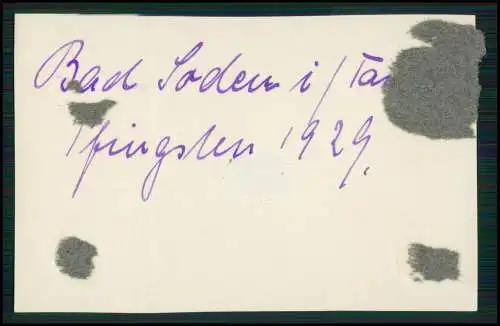 Bad Soden i/Tau
Pfingsten 1929.